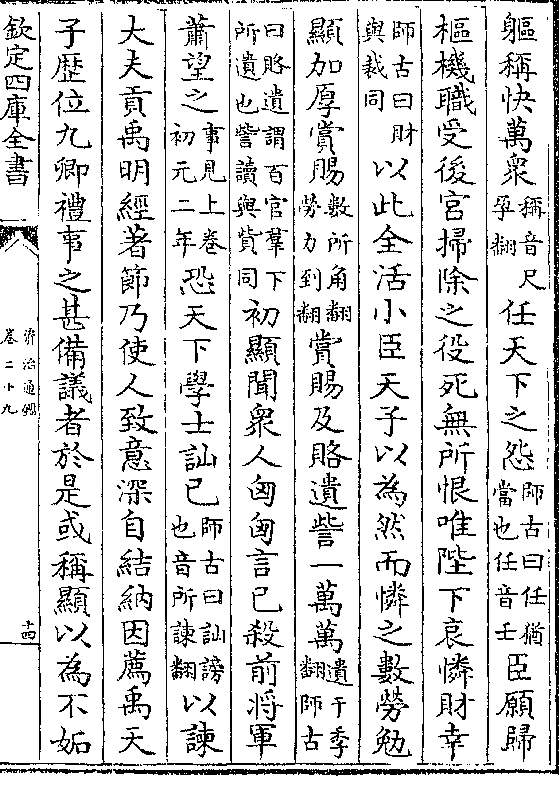 軀稱快萬衆稱音尺孕翻任天下之怨師古曰任猶當也任音壬臣願歸
樞機職受後宮掃除之役死無所恨唯陛下哀憐財幸
師古曰財與裁同以此全活小臣天子以為然而憐之數勞勉
顯加厚賞賜數所角翻勞力到翻賞賜及賂遺訾一萬萬遺于季翻師古
曰賂遺謂百官羣下所遺也訾讀與貲同初顯聞衆人匈匈言已殺前將軍
蕭望之事見上卷初元二年恐天下學士訕已師古曰訕謗也音所諫翻以諫
大夫貢禹明經著節乃使人致意深自結納因薦禹天
子歴位九卿禮事之甚備議者於是或稱顯以為不妬
欽定四庫全書
資治通鑑
卷二十九
十四